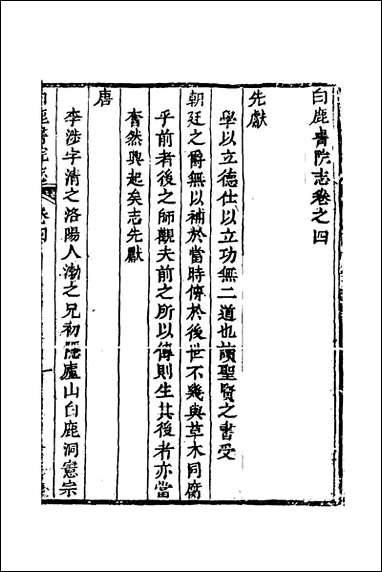 白鹿書院志卷之四
先獻
學以立德仕以立功無二道也讀聖賢之書受
朝廷之爵無以補於當時傳於後世不幾與草木同腐
乎前者後之師觀夫前之所以傳則生其後者亦當
奮然興起矣志先獻
唐
李渉字清之洛陽人渤之兄初隱廬山白鹿洞憲宗
白鹿書院志 卷四 一